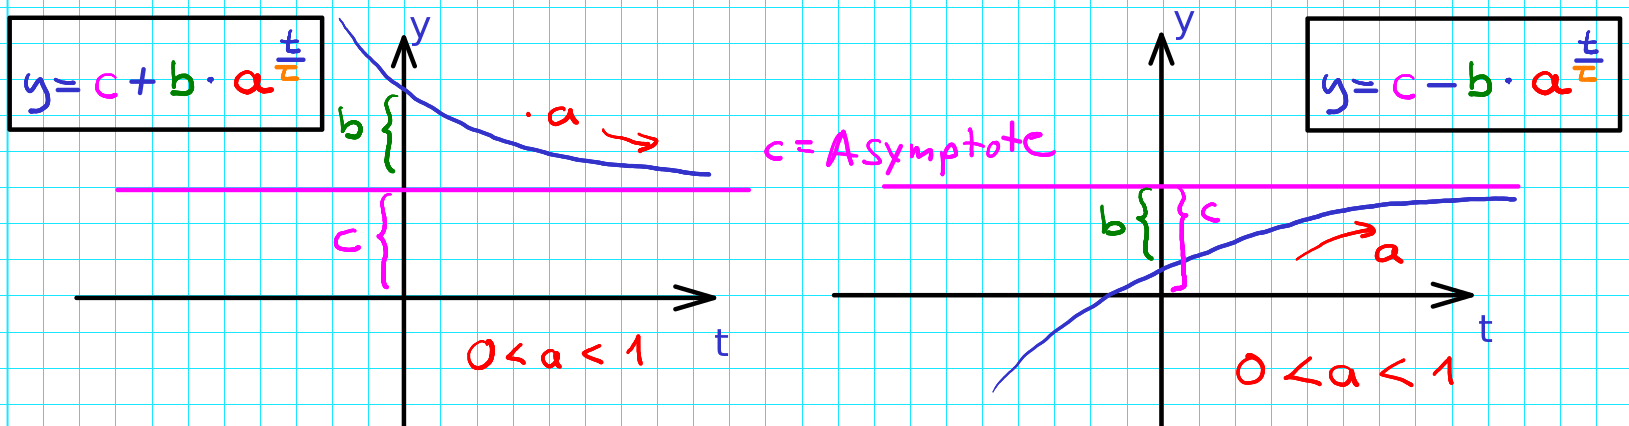 y = c + b · a^(t/τ)
y
b
· a
c
t
0 < a < 1
c = Asymptote
y
y = c − b · a^(t/τ)
b
c
a
t
0 < a < 1